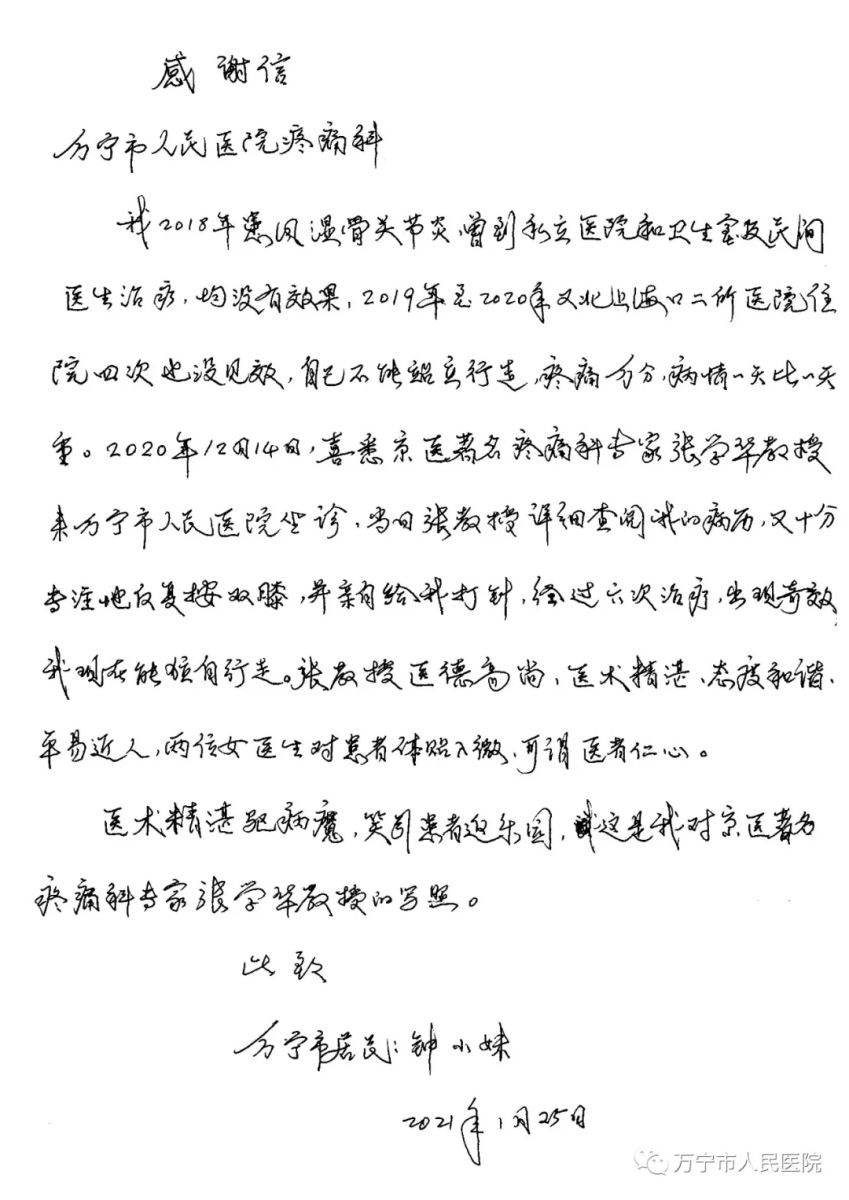 感谢信
万宁市人民医院疼痛科
我2018年患风湿骨关节炎,曾到私立医院和卫生室及民间
医生治疗,均没有效果,2019年至2020年又北上海口二所医院住
院四次也没见效,自己不能站立行走,疼痛万分,病情一天比一天
重。2020年12月14日,喜悉京医著名疼痛科专家张学华教授
来万宁市人民医院坐诊,当日张教授详细查阅我的病历,又十分
专注地反复按双膝,并亲自给我打针,经过六次治疗,出现奇效
我现在能独自行走。张教授医德高尚,医术精湛,态度和谐,
平易近人,两位女医生对患者体贴入微,可谓医者仁心。
医术精湛驱病魔,笑引患者迎乐园,这是我对京医著名
疼痛科专家张学华教授的写照。
此致
万宁市居民:钟小妹
2021年1月25日
万宁市人民医院